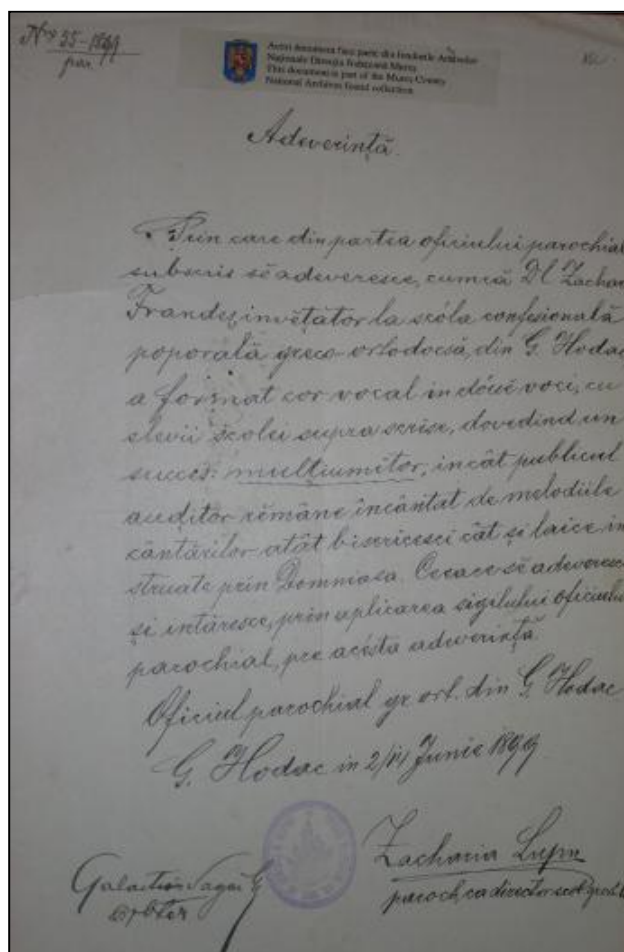 Nrs 35-1899
par.
Acest document face parte din fondurile Arhivelor
Naționale Direcția Județeană Mureș
This document is part of the Mureș County
National Archives found collection
Adeverință.
Prin care din partea oficiului parochial
subscris sĕ adeveresce, cumcă Dl Zachar
Frandeș învĕțător la scóla confesională
poporală greco-ortodocsă, din G. Hodac,
a format cor vocal in dóuĕ voci, cu
elevii scolei supra scrise, dovedind un
succes: mulțiumitor, incât publicul
auditor rĕmâne încântat de melodiile
cântărilor atât bisericesci cât și laice in
struate prin Domniasa. Ceeace sĕ adeveresc
și intăresce, prin aplicarea sigilului oficiului
parochial, pre acésta adeverință
Oficiul parochial gr. ort. din G. Hodac
G. Hodac in 2/14 Junie 1899
Zacharia Lupu
Galaction
paroch, ca director